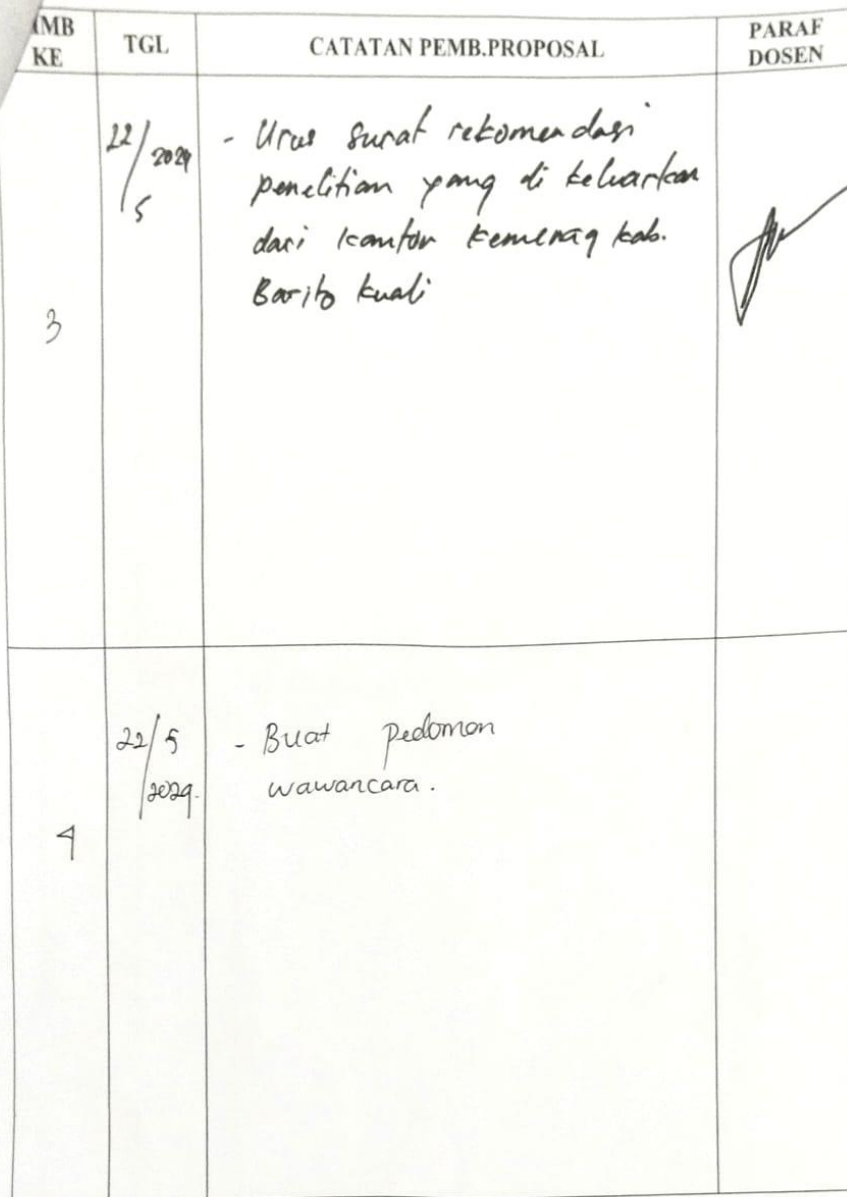 IMB
KE
TGL
CATATAN PEMB.PROPOSAL
PARAF
DOSEN
3
22/5 2024
- Urus surat rekomendasi
penelitian yang di keluarkan
dari kantor kemenag kab.
Barito kuali
4
22/5
2024.
- Buat pedoman
wawancara.